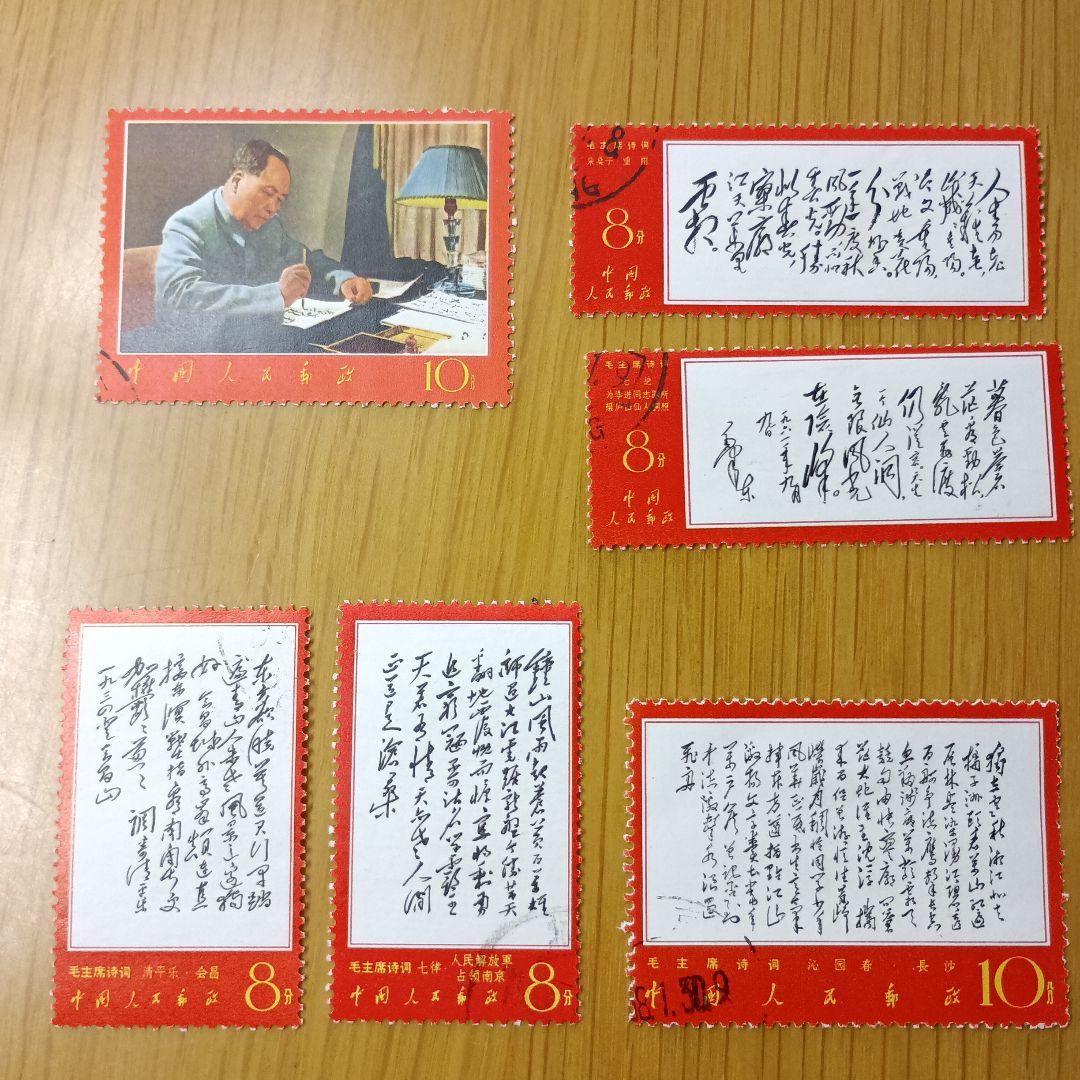 中国人民郵政 10分
毛主席诗词
采桑子 重阳
8分
中国
人民郵政
人生易老
天难老,
岁岁重阳。
今又重阳,
战地黄花
分外香。
一年一度秋
风劲,不似
春光。胜
似春光,
寥廓
江天万里
霜。
毛主席诗词
七绝
为李进同志题所
摄庐山仙人洞照
8分
中国
人民郵政
暮色苍
茫看劲松,
乱云飞渡
仍从容。天生
一个仙人洞,
无限风光
在险峰。
一九六一年九月
九日
毛泽东
东方欲晓莫道君行早踏
遍青山人未老风景这边独
好会昌城外高峰颠连直
接东溟战士指看南粤更
加郁郁葱葱 调寄清平乐
一九三四年
毛主席诗词 清平乐·会昌
中国人民郵政 8分
鐘山风雨起苍黄百万雄
师过大江虎踞龙盘今胜昔天
翻地覆慨而慷宜将剩勇
追穷寇不可沽名学霸王
天若有情天亦老人间
正道是沧桑
毛主席诗词 七律·人民解放軍
占领南京
中国人民郵政 8分
独立寒秋湘江北去
橘子洲头看万山红遍
层林尽染漫江碧透
百舸争流鹰击长空
鱼翔浅底万类霜天
竞自由怅寥廓问苍
茫大地谁主沉浮携
来百侣曾游忆往昔峥
嵘岁月稠恰同学少年
风华正茂书生意气
挥斥方遒指点江山
激扬文字粪土当年
万户侯曾记否到
中流击水浪遏
飞舟
毛主席诗词 沁园春·長沙
中国人民郵政 10分